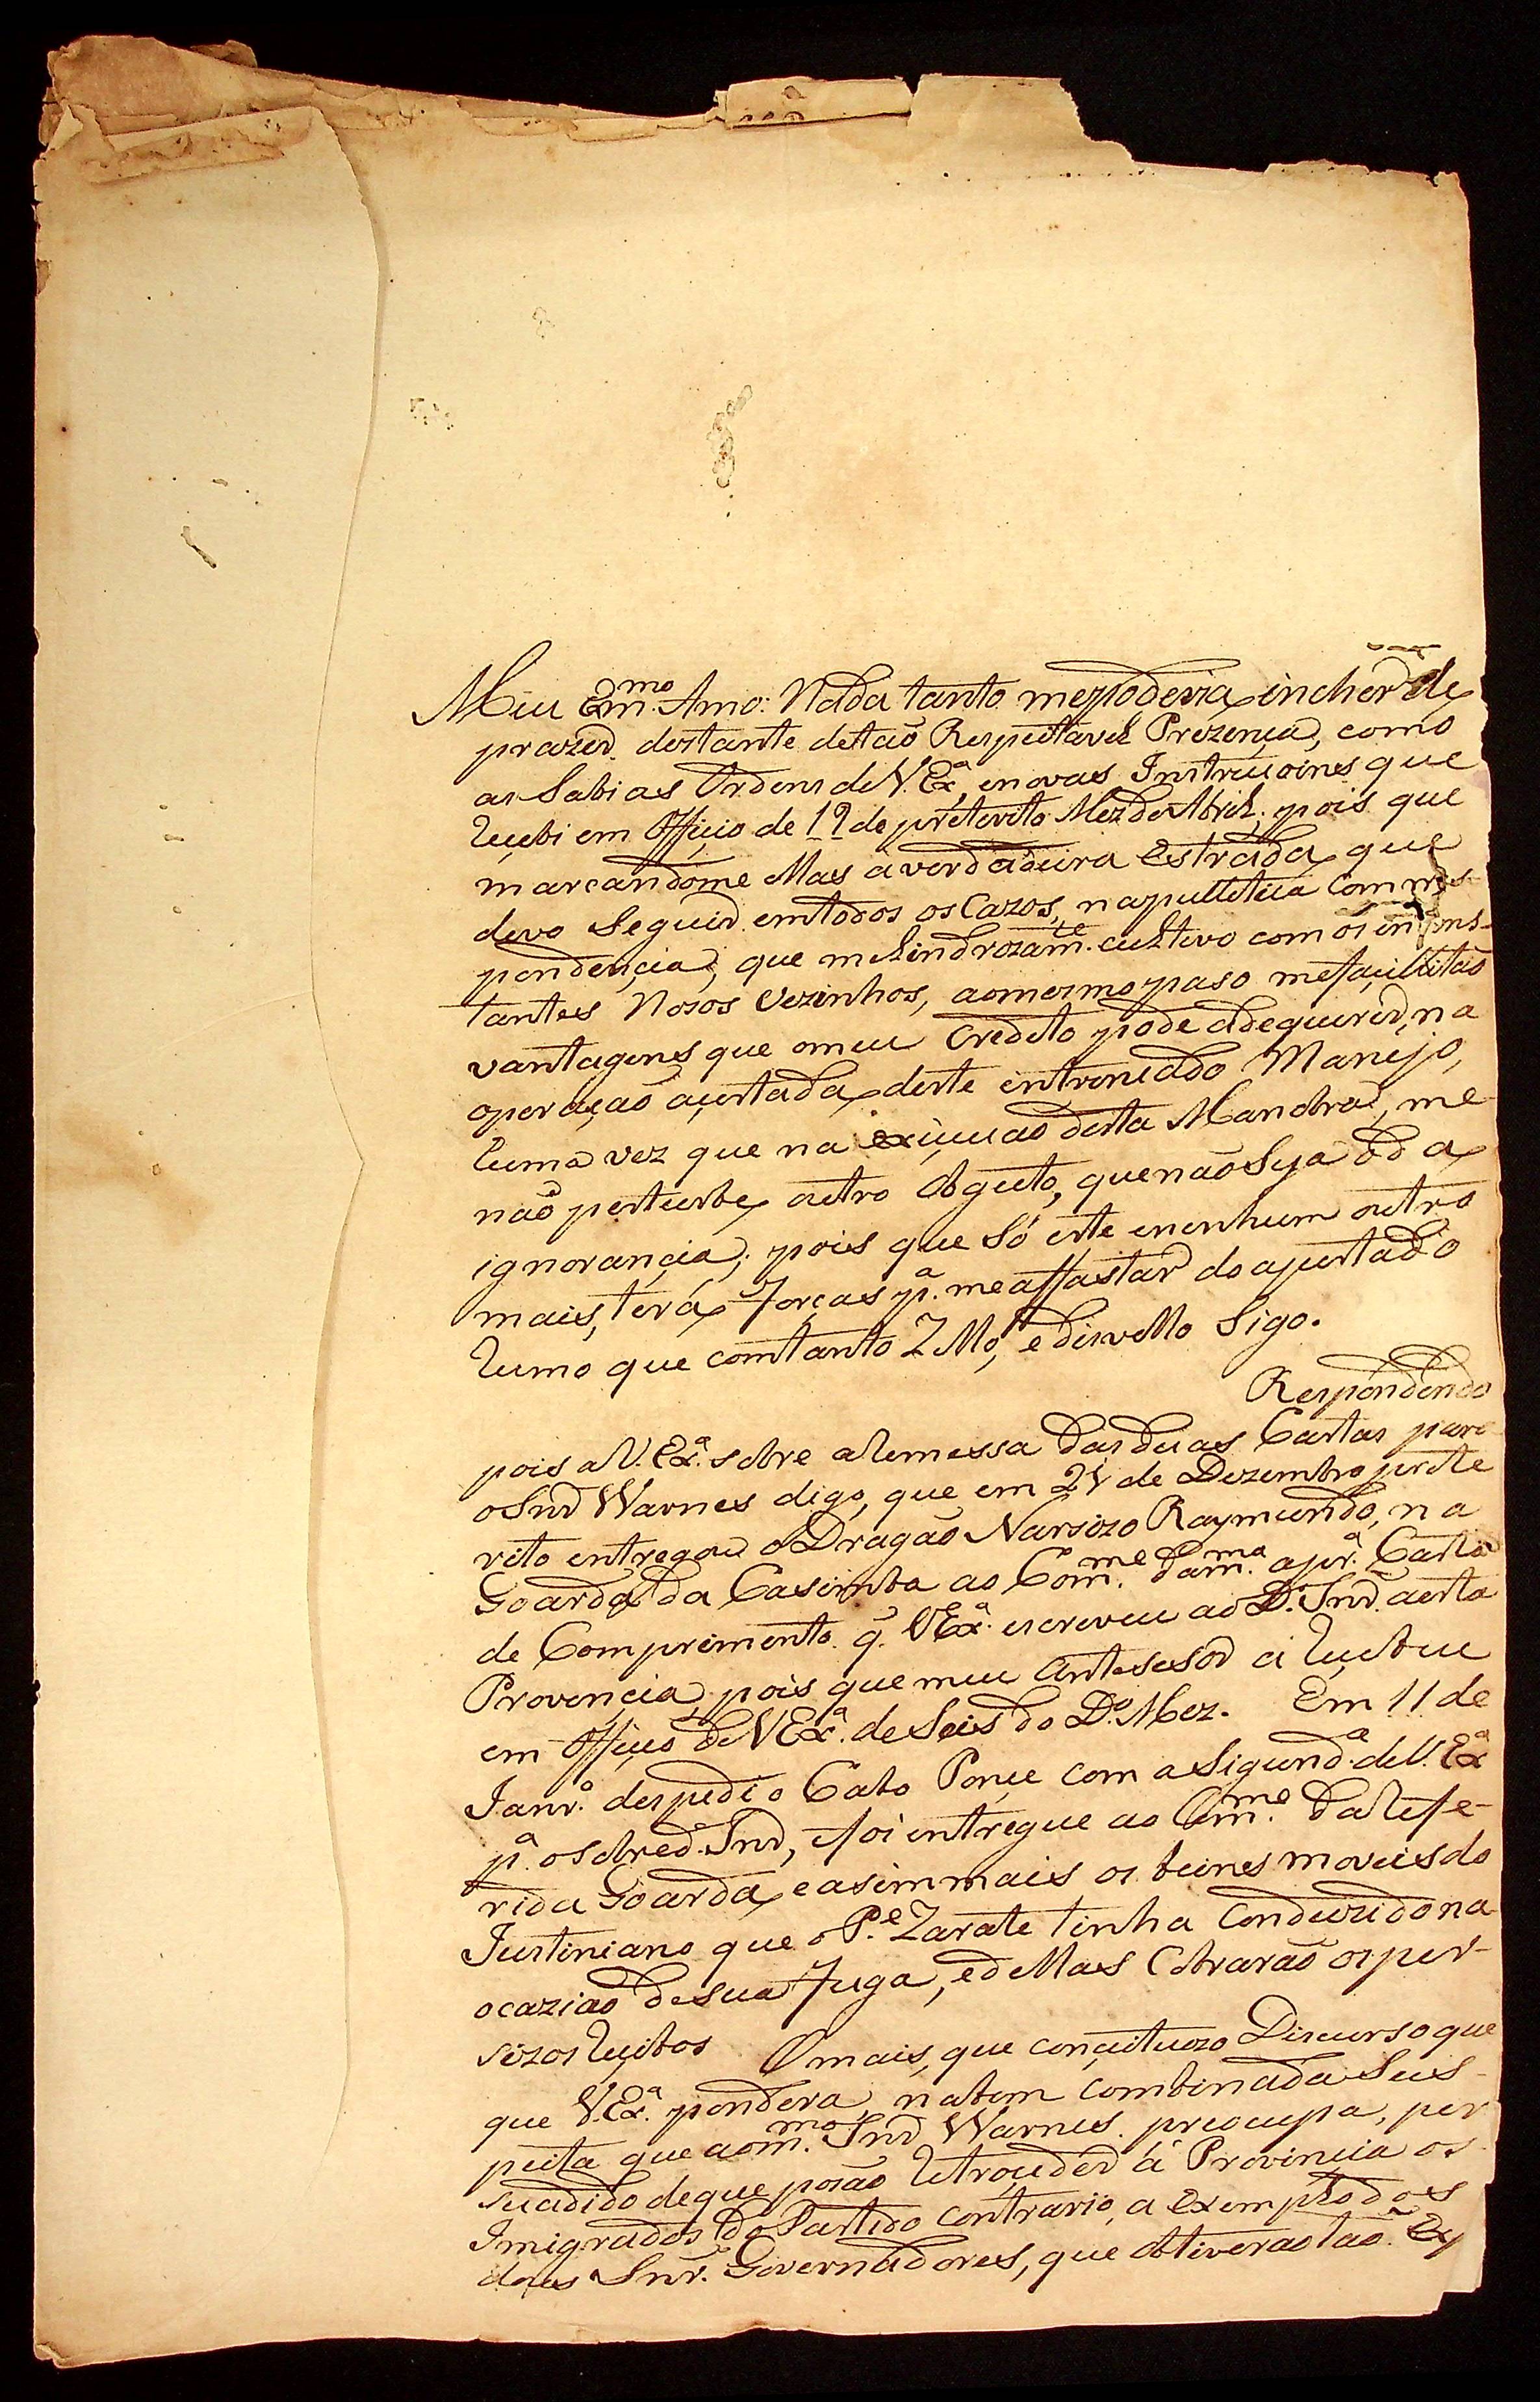 Meu Exm.mo Amo: Nada tanto me poderia incher de
prazer distante de tão Respeitavel Prezença, como
as Sabias Ordens de V. Ex.ª, e novas Instrucoins que
Recebi em Officio de 19 de preterito Mez de Abril; pois que
marcandome Mas a verdadeira Estrada, que
devo Seguir em todos os Cazos, na pulletica Corres-
pondencia, que melindrozam.te cultivo com os
tantes Nosos Vezinhos, ao mesmo paso me facillitão
vantagens que o meu Credito pode adequerir, na
operação acertada deste entroncado Manejo,
huma vez que na exicucao desta Manobra, me
não perturbe outro Obgeto, que não Seja o da
ignorancia; pois que Só este e nenhum outro
mais, terá Forças p.ª me affastar do ajustado
Rumo que com tanto ZMo, e disvello Sigo.
Respondendo
pois a V. Ex.ª sobre a Remessa das duas Cartas para
o Snr Warnes digo, que em 21 de Dezembro prete
rito entregou o Dragão Narsizo Raymundo, na
Goarda da Casimba ao Com.me da m.ma a pr.ª Carta
de Comprimento q. V Ex.ª escreveu ao D.º Snr. desta
Provincia, pois que meu Antesesor a Recebeu
em Officio de V Ex.ª de Seis do D.º Mez. Em 11 de
Janr.º despedi o Cabo Ponce com a Sigund.ª de V. Ex.ª
p.ª o Sobred.º Snr, e foi entregue ao Com.me da Refe-
rida Goarda, e asim mais os beines moveis do
Justiniano que o P.e Zarate tinha Conduzido na
ocazião de sua Fuga, e dellas Cobrarão os per-
sizos Recibos O mais, que conceituozo Discurso que
que V. Ex.ª pondera, na bem Combinada Sus-
peita que ao m.mo Snr Warnes preocupa, per
suadido de que posão Retroceder á Provincia os
Imigrados do Partido Contrario, a exemplo dos
does Snr.es Governadores, que obtiverão tão Ex